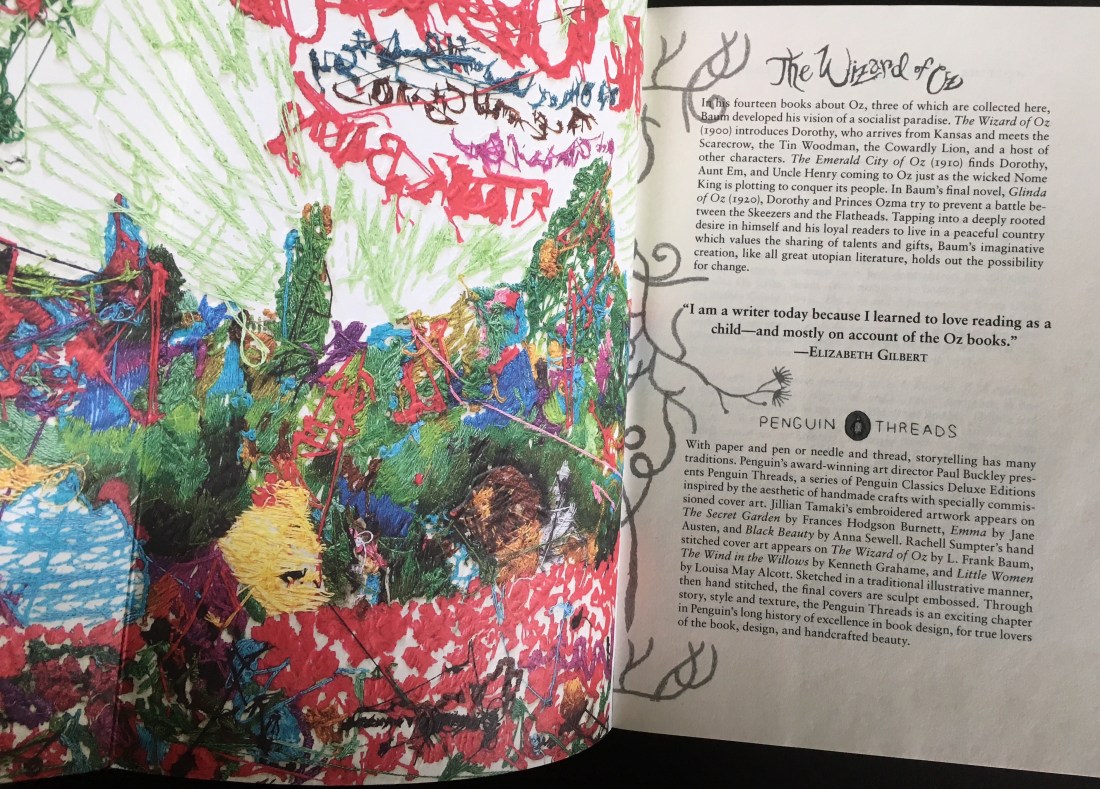 The Wizard of Oz
In his fourteen books about Oz, three of which are collected here,
Baum developed his vision of a socialist paradise. The Wizard of Oz
(1900) introduces Dorothy, who arrives from Kansas and meets the
Scarecrow, the Tin Woodman, the Cowardly Lion, and a host of
other characters. The Emerald City of Oz (1910) finds Dorothy,
Aunt Em, and Uncle Henry coming to Oz just as the wicked Nome
King is plotting to conquer its people. In Baum's final novel, Glinda
of Oz (1920), Dorothy and Princes Ozma try to prevent a battle be-
tween the Skeezers and the Flatheads. Tapping into a deeply rooted
desire in himself and his loyal readers to live in a peaceful country
which values the sharing of talents and gifts, Baum's imaginative
creation, like all great utopian literature, holds out the possibility
for change.
"I am a writer today because I learned to love reading as a
child—and mostly on account of the Oz books."
—ELIZABETH GILBERT
PENGUIN THREADS
With paper and pen or needle and thread, storytelling has many
traditions. Penguin's award-winning art director Paul Buckley pres-
ents Penguin Threads, a series of Penguin Classics Deluxe Editions
inspired by the aesthetic of handmade crafts with specially commis-
sioned cover art. Jillian Tamaki's embroidered artwork appears on
The Secret Garden by Frances Hodgson Burnett, Emma by Jane
Austen, and Black Beauty by Anna Sewell. Rachell Sumpter's hand
stitched cover art appears on The Wizard of Oz by L. Frank Baum,
The Wind in the Willows by Kenneth Grahame, and Little Women
by Louisa May Alcott. Sketched in a traditional illustrative manner,
then hand stitched, the final covers are sculpt embossed. Through
story, style and texture, the Penguin Threads is an exciting chapter
in Penguin's long history of excellence in book design, for true lovers
of the book, design, and handcrafted beauty.